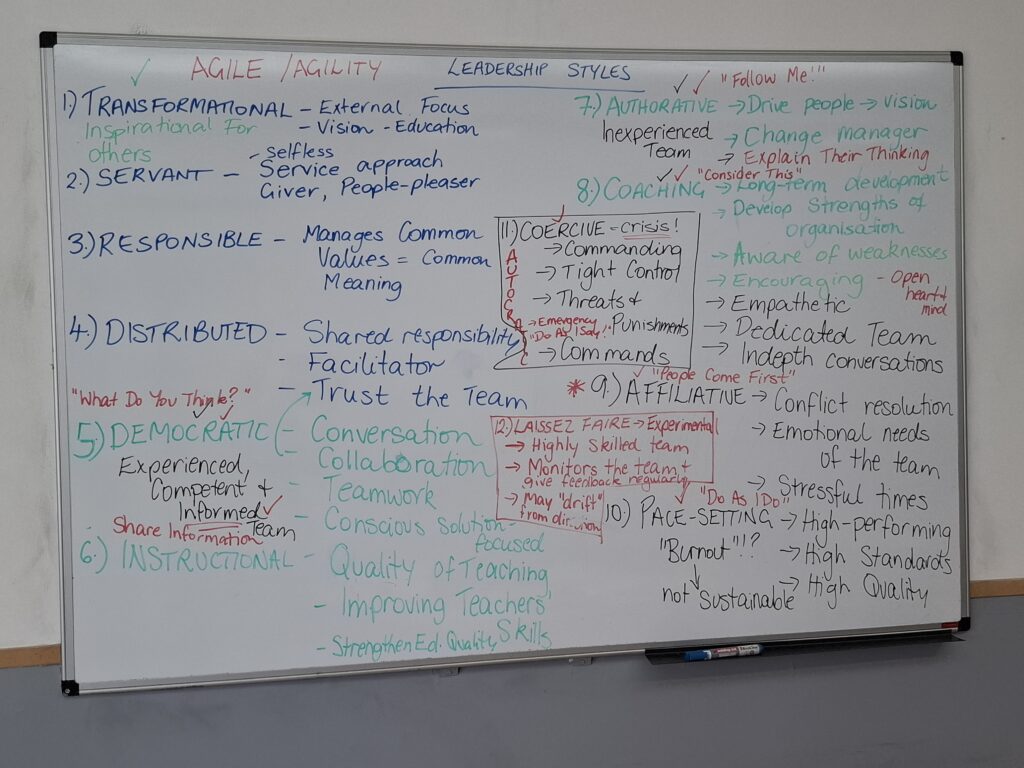 ✓ AGILE /AGILITY
LEADERSHIP STYLES
1.) TRANSFORMATIONAL - External Focus
- Vision - Education
Inspirational For
others
2.) SERVANT - Selfless
Service approach
Giver, People-pleaser
3.) RESPONSIBLE - Manages Common
Values = Common
Meaning
4.) DISTRIBUTED - Shared responsibility
- Facilitator
- Trust the Team
"What Do You Think?"
5) DEMOCRATIC - Conversation
- Collaboration
- Teamwork
- Conscious Solution-
focused
Experienced,
Competent +
Informed
Team
Share Information
6.) INSTRUCTIONAL - Quality of Teaching
- Improving Teachers'
Skills
- Strengthen Ed. Quality
"Follow Me!"
7.) AUTHORATIVE → Drive people → vision
Inexperienced
Team
→ Change manager
→ Explain Their Thinking
"Consider This"
8.) COACHING → Long-term development
→ Develop Strengths of
organisation
→ Aware of weaknesses
→ Encouraging - Open
heart +
mind
→ Empathetic
→ Dedicated Team
→ Indepth conversations
11.) COERCIVE = crisis!
AUTOCRATIC
→ Commanding
→ Tight Control
→ Threats +
Punishments
→ Emergency
"Do As I Say!"
→ Commands
"People Come First"
* 9.) AFFILIATIVE → Conflict resolution
→ Emotional needs
of the team
→ Stressful times
12.) LAISSEZ FAIRE → Experimental
→ Highly Skilled team
→ Monitors the team +
give feedback regularly
→ May "drift"
from direction
"Do As I Do"
10.) PACE-SETTING → High-performing
→ High Standards
→ High Quality
"Burnout"!?
↓
not Sustainable